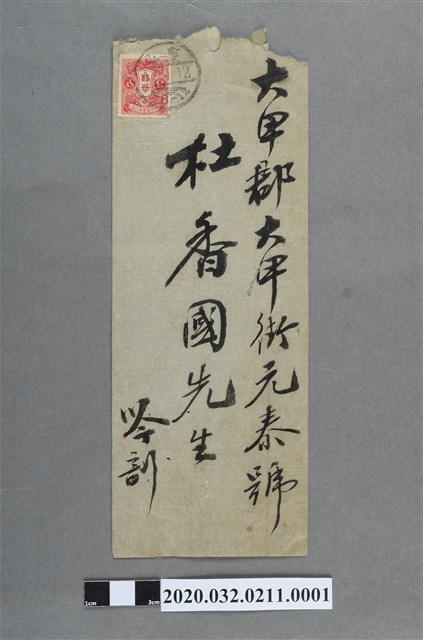 大甲郡大甲街元泰號
杜香國先生
岭訓
12
1cm
3cm
2020.032.0211.0001